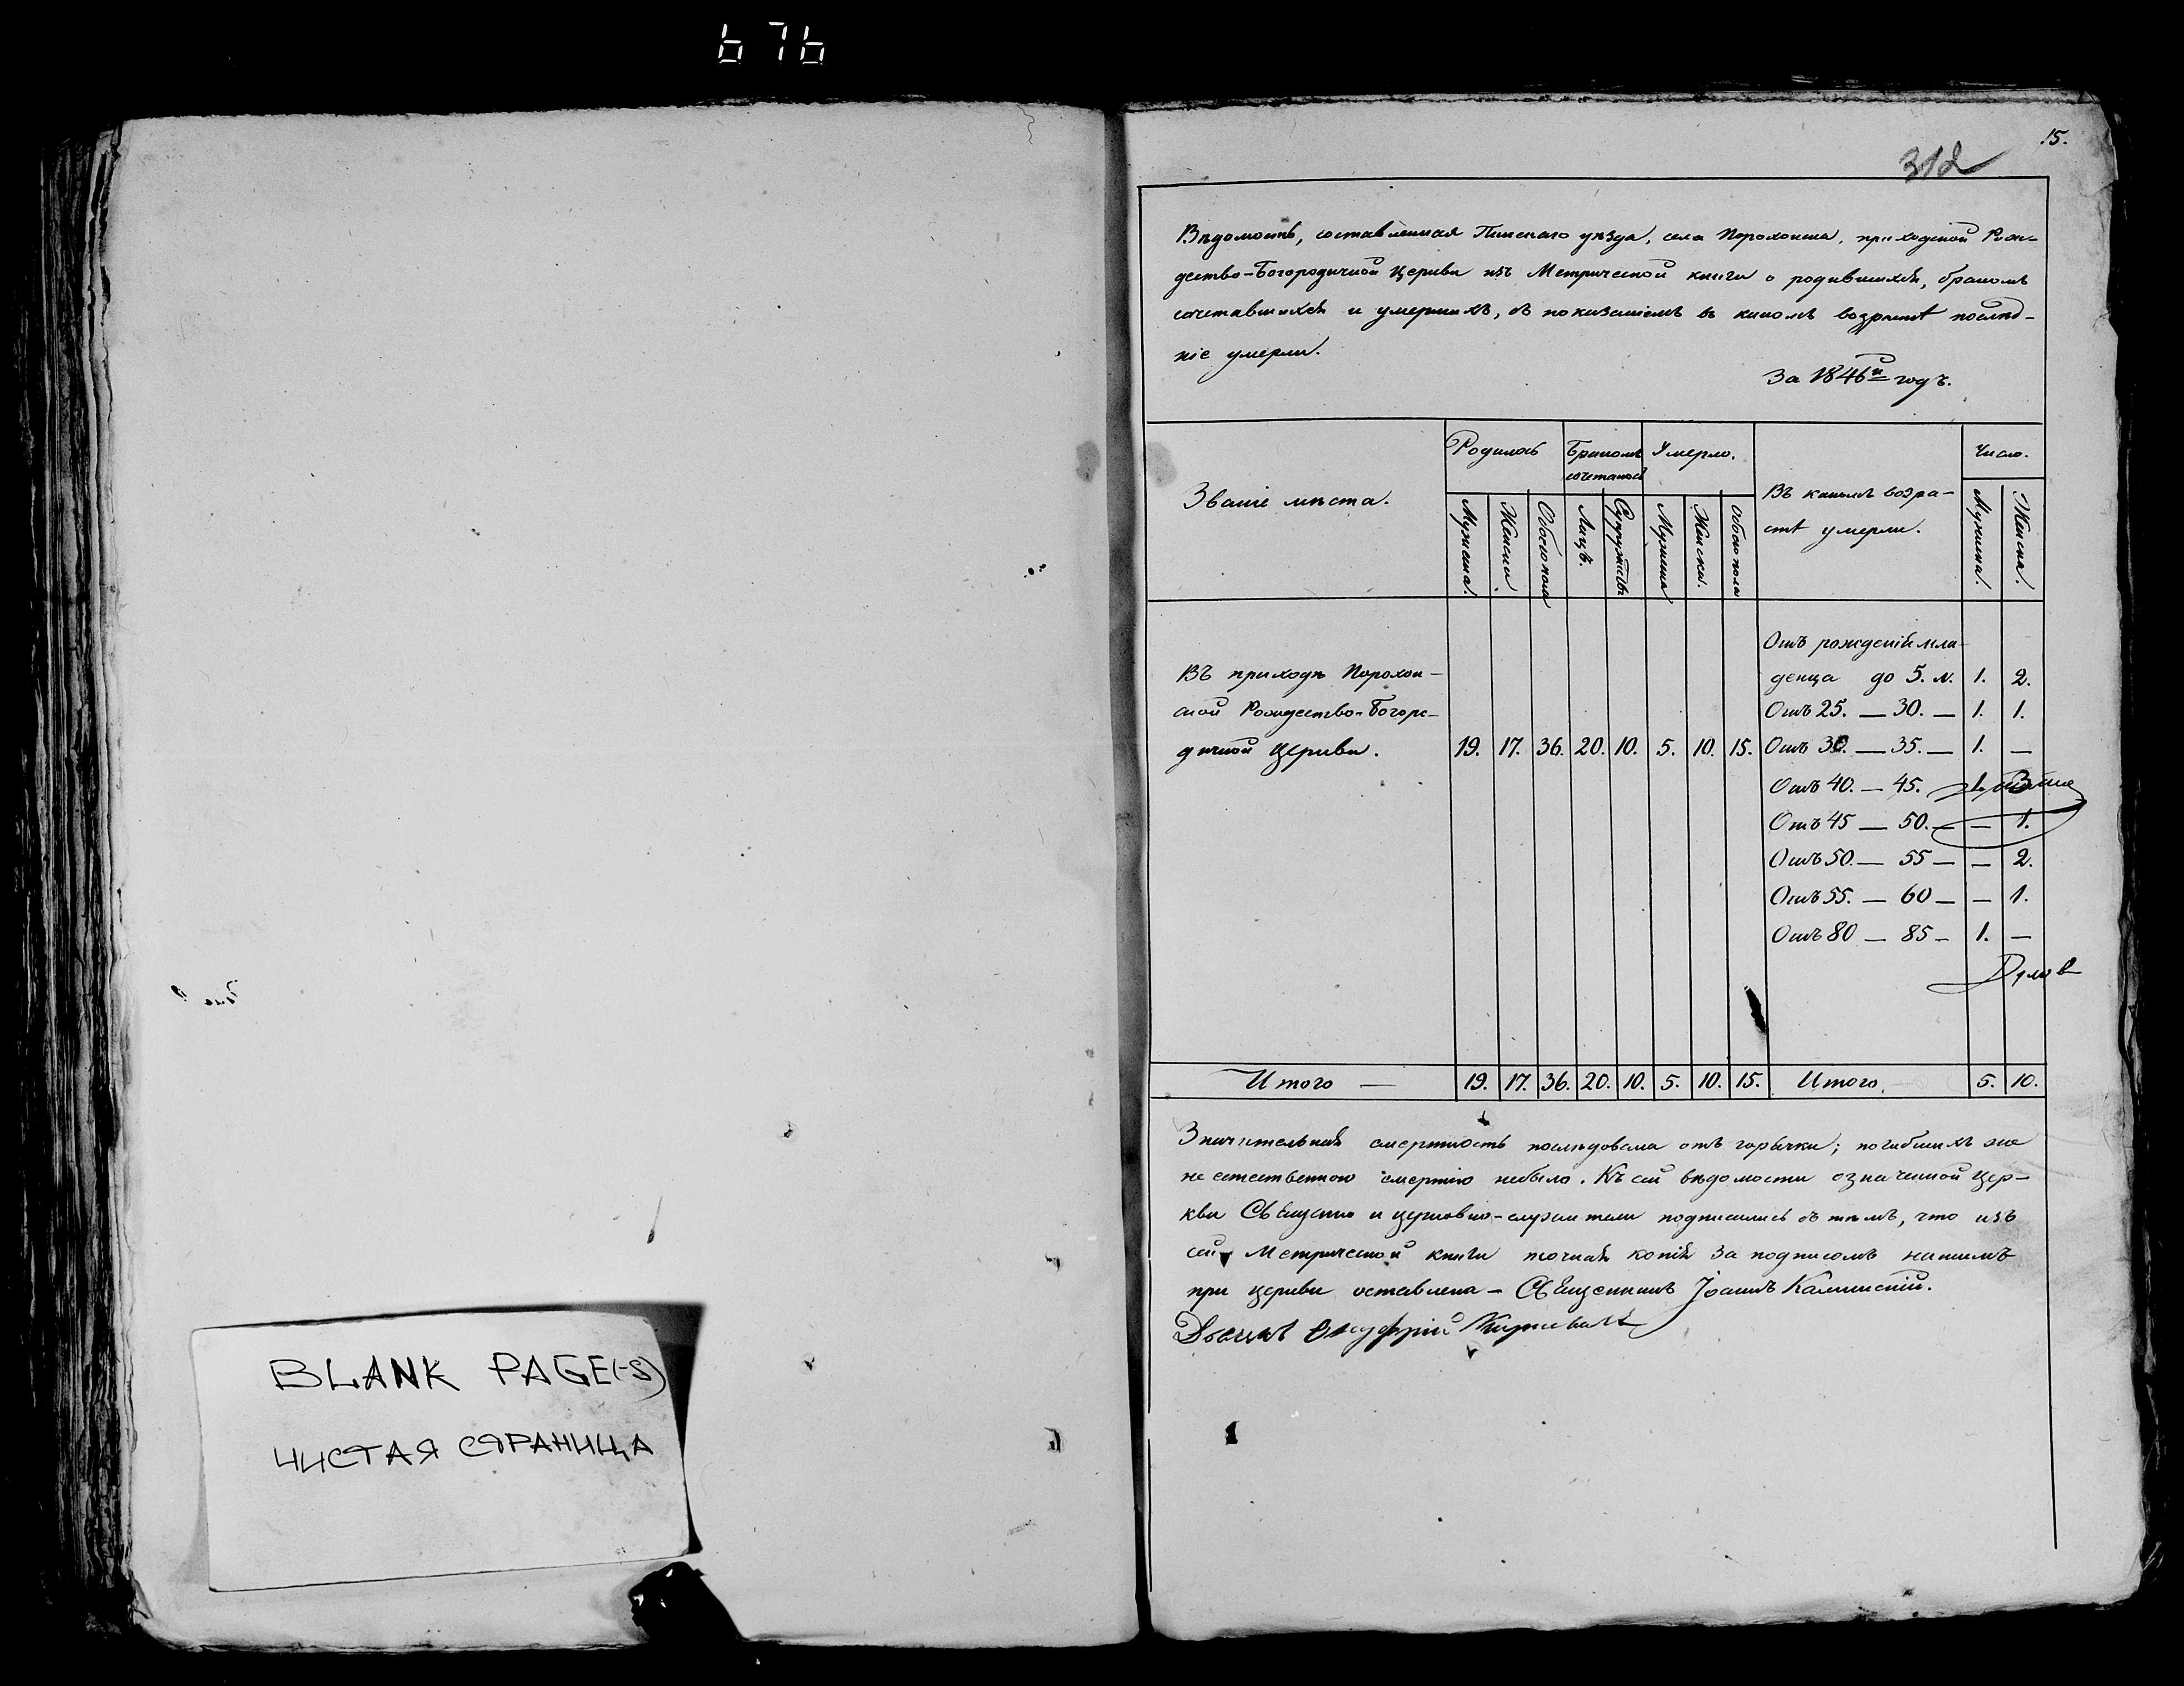 676
15.
312
Вѣдомость, составленная Пинскаго уѣзда, села Порохонска, приходской Рож-
дество-Богородичной Церкви изъ Метрической книги о родившихся, бракомъ
сочетавшихся и умершихъ, съ показаніемъ въ какомъ возрастѣ послѣд-
ніе умерли.
За 1846й годъ.
Званіе мѣста.
Родилось
Бракомъ сочеталось
Умерло.
Въ какомъ возра-
стѣ умерли.
Число.
Мужеска. Женска. Обоего пола Лицъ. Супружествъ Мужеска Женска. Обоего пола Мужеска. Женска.
Отъ рожденія мла-
Въ приходѣ Порохон- денца до 5. л. 1. 2.
ской Рождество-Богоро- Отъ 25. — 30. — 1. 1.
дичной Церкви. 19. 17. 36. 20. 10. 5. 10. 15. Отъ 30. — 35. — 1. —
Отъ 40. — 45. 1. 3
Отъ 45 — 50. — — 1.
Отъ 50. — 55 — — 2.
Отъ 55. — 60 — — 1.
Отъ 80 — 85 — 1. —
Итого — 19. 17. 36. 20. 10. 5. 10. 15. Итого. 5. 10.
Значительная смертность послѣдовала отъ горячки; погибшихъ же
не естественною смертію небыло. Къ сей вѣдомости означенной Цер-
кви Священно и церковно-служители подписались въ томъ, что изъ
сей Метрической книги точная копія за подписомъ нашимъ
при церкви оставлена — Священникъ Іоаннъ Калинскій.
Дьячекъ Онуфрій
BLANK PAGE(-S)
ЧИСТАЯ СТРАНИЦА